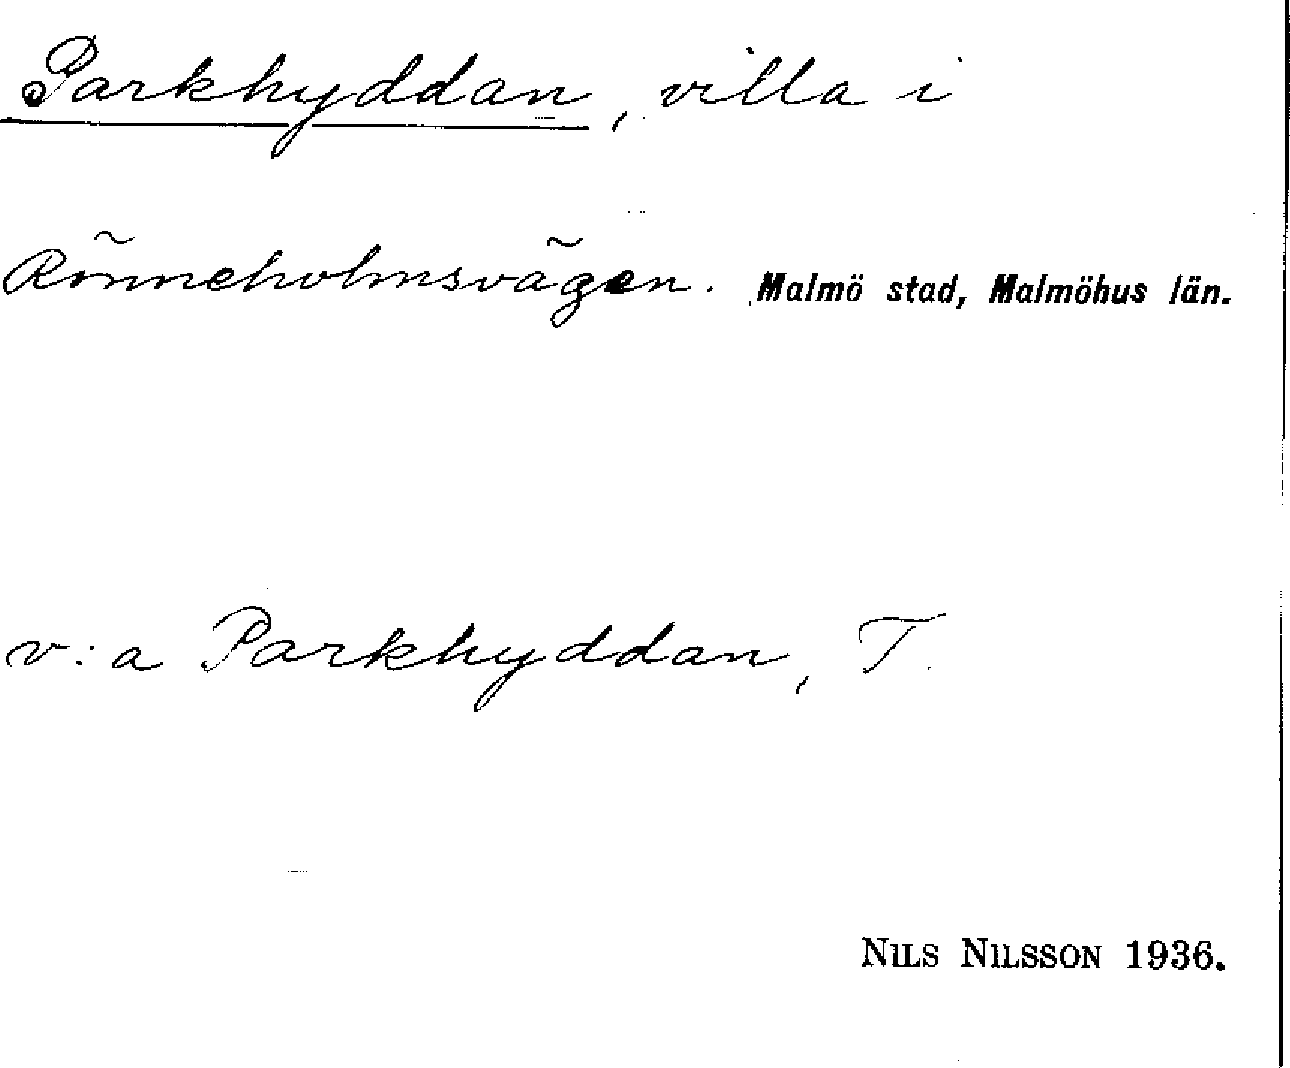 Parkhyddan, villa i
Rönneholmsvägen. Malmö stad, Malmöhus län.
v:a Parkhyddan, T.
NILS NILSSON 1936.